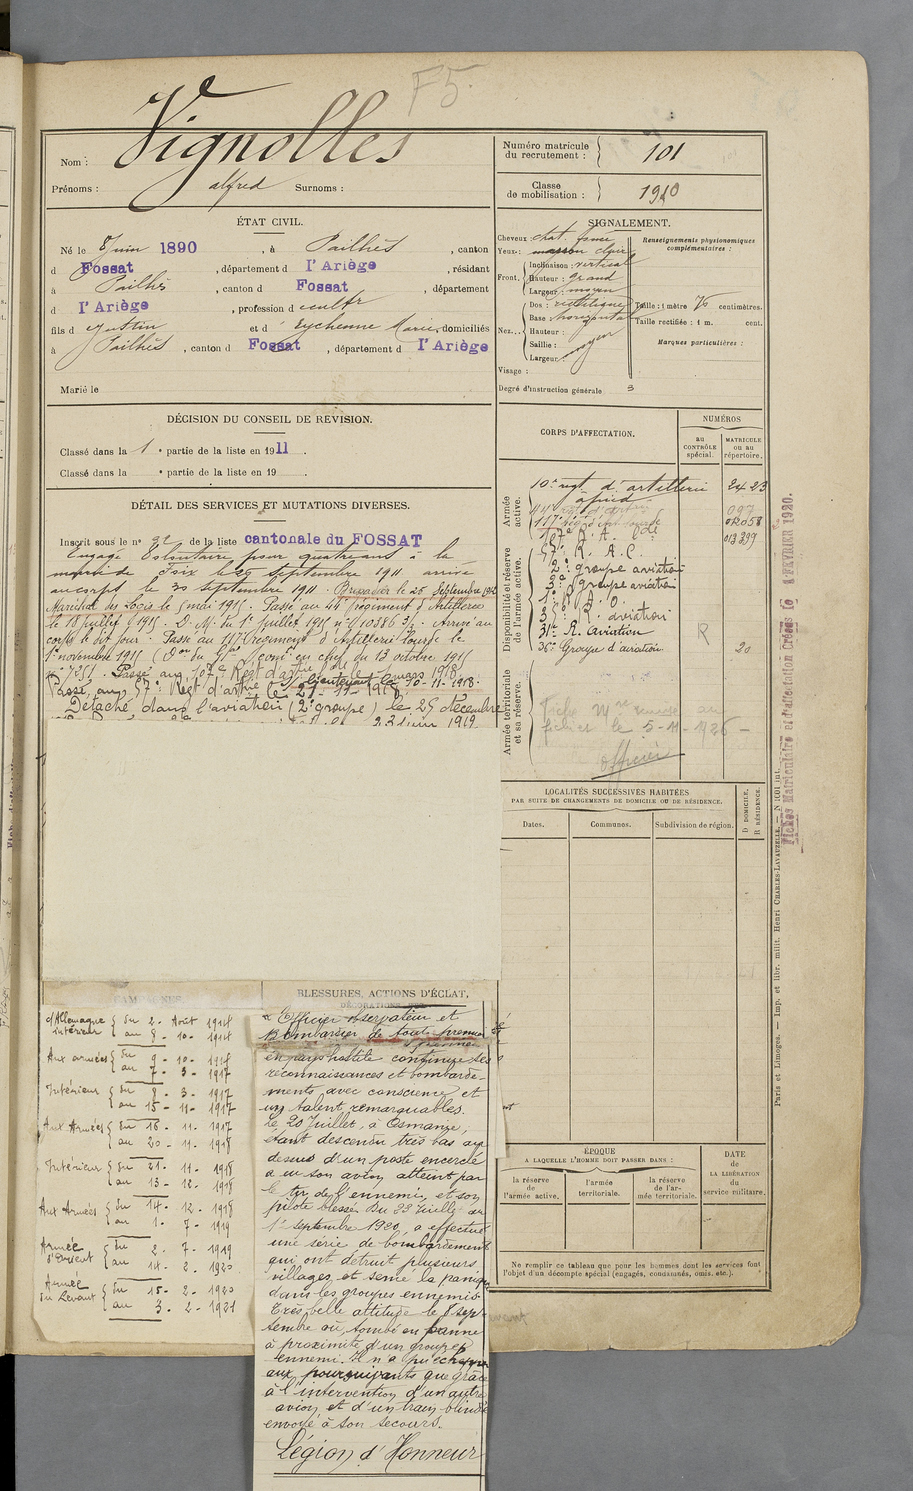 F5.
Nom : Vignolles
Prénoms : alfred Surnoms :
Numéro matricule du recrutement : 101
Classe de mobilisation : 1910
ÉTAT CIVIL.
Né le 8 juin 1890 , à Pailhès , canton
d Fossat , département d l'Ariège , résidant
à Pailhès , canton d Fossat , département
d l'Ariège , profession d cultr
fils d Justin et d Eychenne Marie, domiciliés
à Pailhès , canton d Fossat , département d l'Ariège
Marié le
SIGNALEMENT.
Cheveux : chat. foncé
Yeux : marron clair
Front. Inclinaison : vertical
Hauteur : grand
Largeur : moyen
Nez. Dos : rectiligne
Base : horizontale
Hauteur :
Saillie :
Largeur : moyen
Visage :
Degré d'instruction générale 3
Renseignements physionomiques complémentaires :
Taille : 1 mètre 75 centimètres.
Taille rectifiée : 1 m. cent.
Marques particulières :
DÉCISION DU CONSEIL DE REVISION.
Classé dans la 1 e partie de la liste en 1911 .
Classé dans la e partie de la liste en 19 .
DÉTAIL DES SERVICES ET MUTATIONS DIVERSES.
Inscrit sous le n° de la liste cantonale du FOSSAT
Engagé Volontaire pour quatre ans à la
mairie de Foix le septembre 1911 arrivé
au corps le 30 septembre 1911. Brigadier le 25 Septembre 1912
Maréchal des Logis le 5 mai 1915. Passé au 44e Régiment d'Artillerie
le 18 juillet 1915. D. M. du 1er juillet 1915 n° 10386 3/2. Arrivé au
corps le dit jour. Passé au 117e Régiment d'Artillerie lourde le
1er novembre 1915 (Don du Gal Com. en chef du 13 octobre 1915
n° 7251. Passé au 107e Regt d'artie lde le mars 1918.
S/Lieutenant le 10-11-1918.
Passé au 57e Regt d'artie le 21-11-1918
Détaché dans l'aviation (2e groupe) le 25 décembre
22 juin 1919
CORPS D'AFFECTATION.
NUMÉROS
au contrôle spécial.
matricule ou au répertoire.
Armée active.
10e regt d'artillerie 2423
à pied
44e regt d'artie 097
117e regt d'art lourde 02058
Disponibilité et réserve de l'armée active.
107e R. A. Lde 013399
57e R. A. C.
2e groupe aviation
3e groupe aviation
1er R. A. O.
3e R. aviation
31e R. aviation R
36e Groupe d'aviation 20
Armée territoriale et sa réserve.
Fiche Mle remise au
fichier le 5-11-1926 -
officier
LOCALITÉS SUCCESSIVES HABITÉES
PAR SUITE DE CHANGEMENTS DE DOMICILE OU DE RÉSIDENCE.
Dates. Communes. Subdivision de région. D DOMICILE. R RÉSIDENCE.
CAMPAGNES.
d'Allemagne intérieur du 2 - Août 1914
au 8 - 10 - 1914
Aux armées du 9 - 10 - 1914
au 7 - 3 - 1917
Intérieur du 8 - 3 - 1917
au 15 - 11 - 1917
Aux Armées du 16 - 11 - 1917
au 20 - 11 - 1918
Intérieur du 21 - 11 - 1918
au 13 - 12 - 1918
Aux Armées du 14 - 12 - 1918
au 1 - 7 - 1919
Armée d'Orient du 2 - 7 - 1919
au 14 - 2 - 1920
Armée du Levant du 15 - 2 - 1920
au 3 - 2 - 1921
BLESSURES, ACTIONS D'ÉCLAT,
DÉCORATIONS, ETC.
« Officier observateur et
Bombardier de tout premier
en pays hostile continue les
reconnaissances et bombarde-
ments avec conscience et
un talent remarquables.
Le 20 Juillet, à Osmanie,
étant descendu très bas au
dessus d'un poste encerclé
a eu son avion atteint par
le tir de l'ennemi, et son
pilote blessé. Du 23 Juillet au
1er septembre 1920, a effectué
une série de bombardements
qui ont détruit plusieurs
villages, et semé la panique
dans les groupes ennemis.
Très belle attitude le 8 sep-
tembre où, tombé en panne
à proximité d'un groupe
ennemi. Il n'a pu échapper
aux poursuivants que grâce
à l'intervention d'un autre
avion et d'un train blindé
envoyé à son secours.
Légion d'Honneur
ÉPOQUE
A LAQUELLE L'HOMME DOIT PASSER DANS :
la réserve de l'armée active. l'armée territoriale. la réserve de l'armée territoriale.
DATE DE LA LIBÉRATION du service militaire.
Ne remplir ce tableau que pour les hommes dont les services font
l'objet d'un décompte spécial (engagés, condamnés, omis, etc.).
Paris et Limoges. — Imp. et libr. milit. Henri CHARLES-LAVAUZELLE. — N 1001 int.
Fiches Matriculaire et d'affectation Créées le 4 FEVRIER 1920.